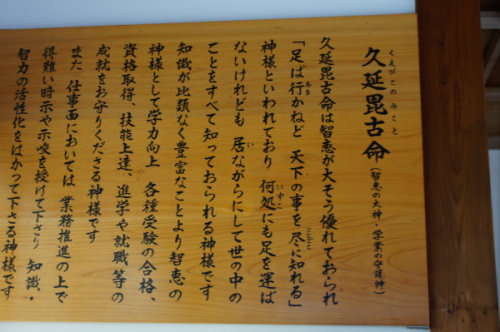 久延毘古命(智恵の大神・学業の守護神)
くえびこのみこと
久延毘古命は智恵が大そう優れておられ
「足は行かねど 天下の事を 尽に知れる」
あめ
ことごと
神様といわれており 何処にも足を運ば
いずこ
ないけれども 居ながらにして世の中の
ことをすべて知っておられる神様です
知識が比類なく豊富なことより智恵の
神様として学力向上 各種受験の合格、
資格取得、技能上達、進学や就職等の
成就をお守りくださる神様です
また 仕事面においては 業務推進の上で
得難い時示や示唆を授けて下さり 知識・
智力の活性化をはかって下さる神様です